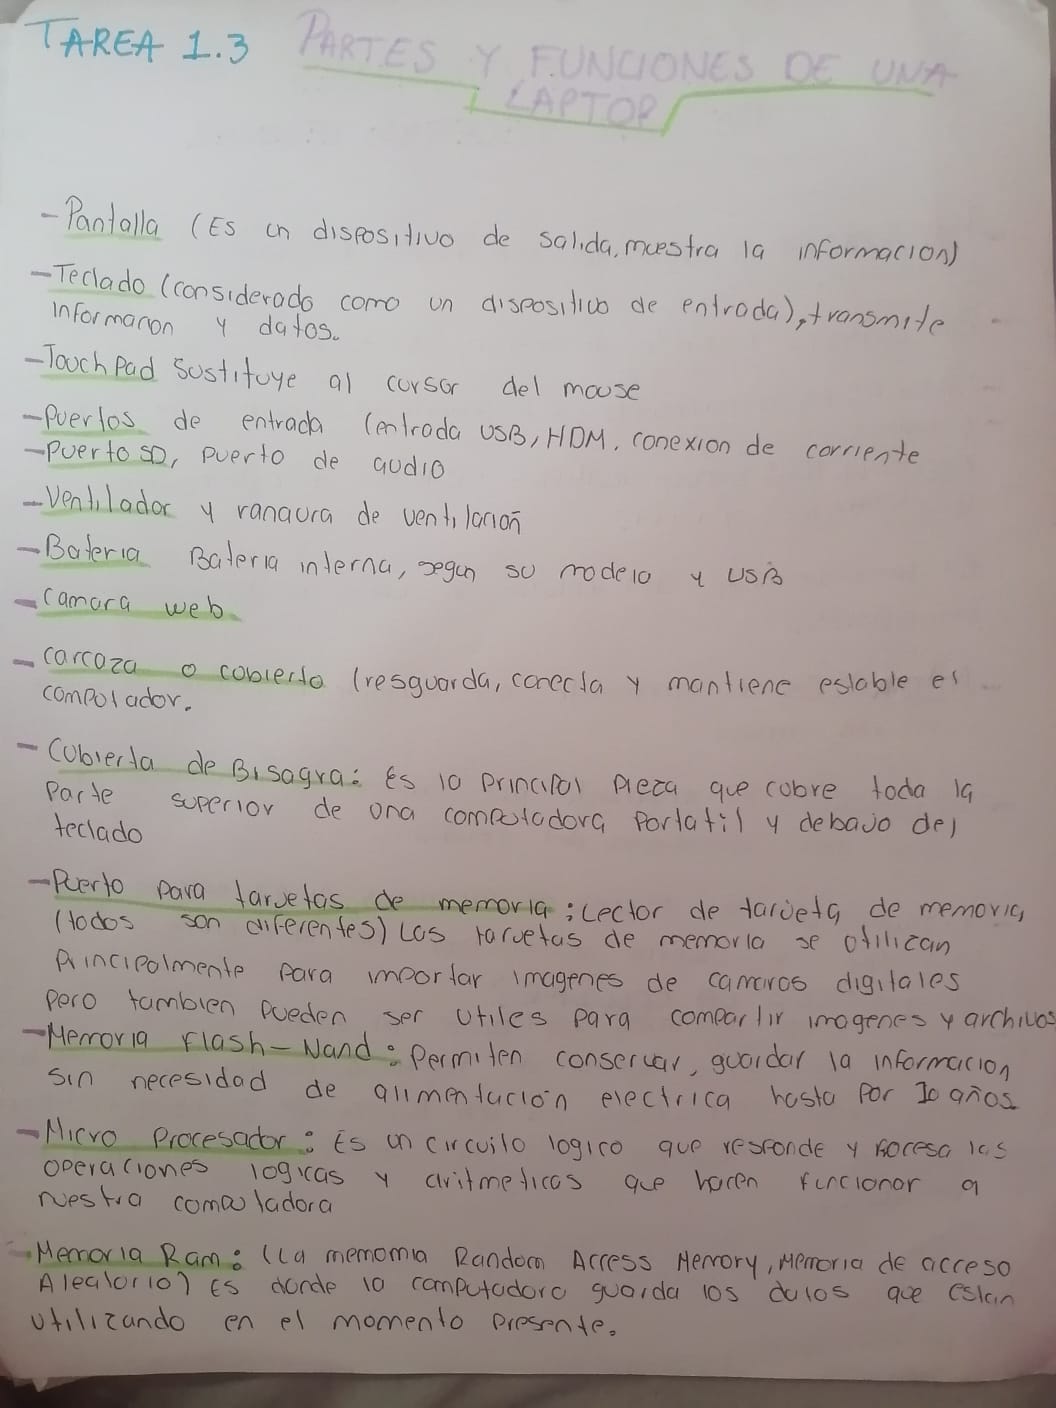 TAREA 1.3 PARTES Y FUNCIONES DE UNA
LAPTOP
-Pantalla (Es un dispositivo de salida, muestra la informacion)
-Teclado (considerado como un dispositivo de entrada), transmite
informacion y datos.
-Touch Pad sustituye al cursor del mouse
-Puertos de entrada (entrada USB, HDM, conexion de corriente
-Puerto SD, puerto de audio
-Ventilador y ranaura de ventilacion
-Bateria Bateria interna, segun su modelo y USB
-Camara web.
- Carcoza o cobierta (resguarda, conecta y mantiene estable el
computador.
- Cubierta de Bisagra: Es la principal pieza que cobre toda la
parte superior de una computadora portatil y debajo del
teclado
-Puerto para tarjetas de memoria; Lector de tarjeta de memoria,
(todos son diferentes) Las tarjetas de memoria se utilizan
Principalmente para importar imagenes de camaras digitales
pero tambien pueden ser utiles para compartir imagenes y archivos
-Memoria Flash-Nand: Permiten conservar, guardar la informacion
sin necesidad de alimentación electrica hasta por 10 años.
-Micro Procesador: Es un circuito logico que responde y procesa las
operaciones logicas y aritmeticas que hacen funcionar a
nuestra computadora
-Memoria Ram: (La memoria Random Access Memory, Memoria de acceso
Aleatorio) Es donde la computadora guarda los datos que estan
utilizando en el momento presente.